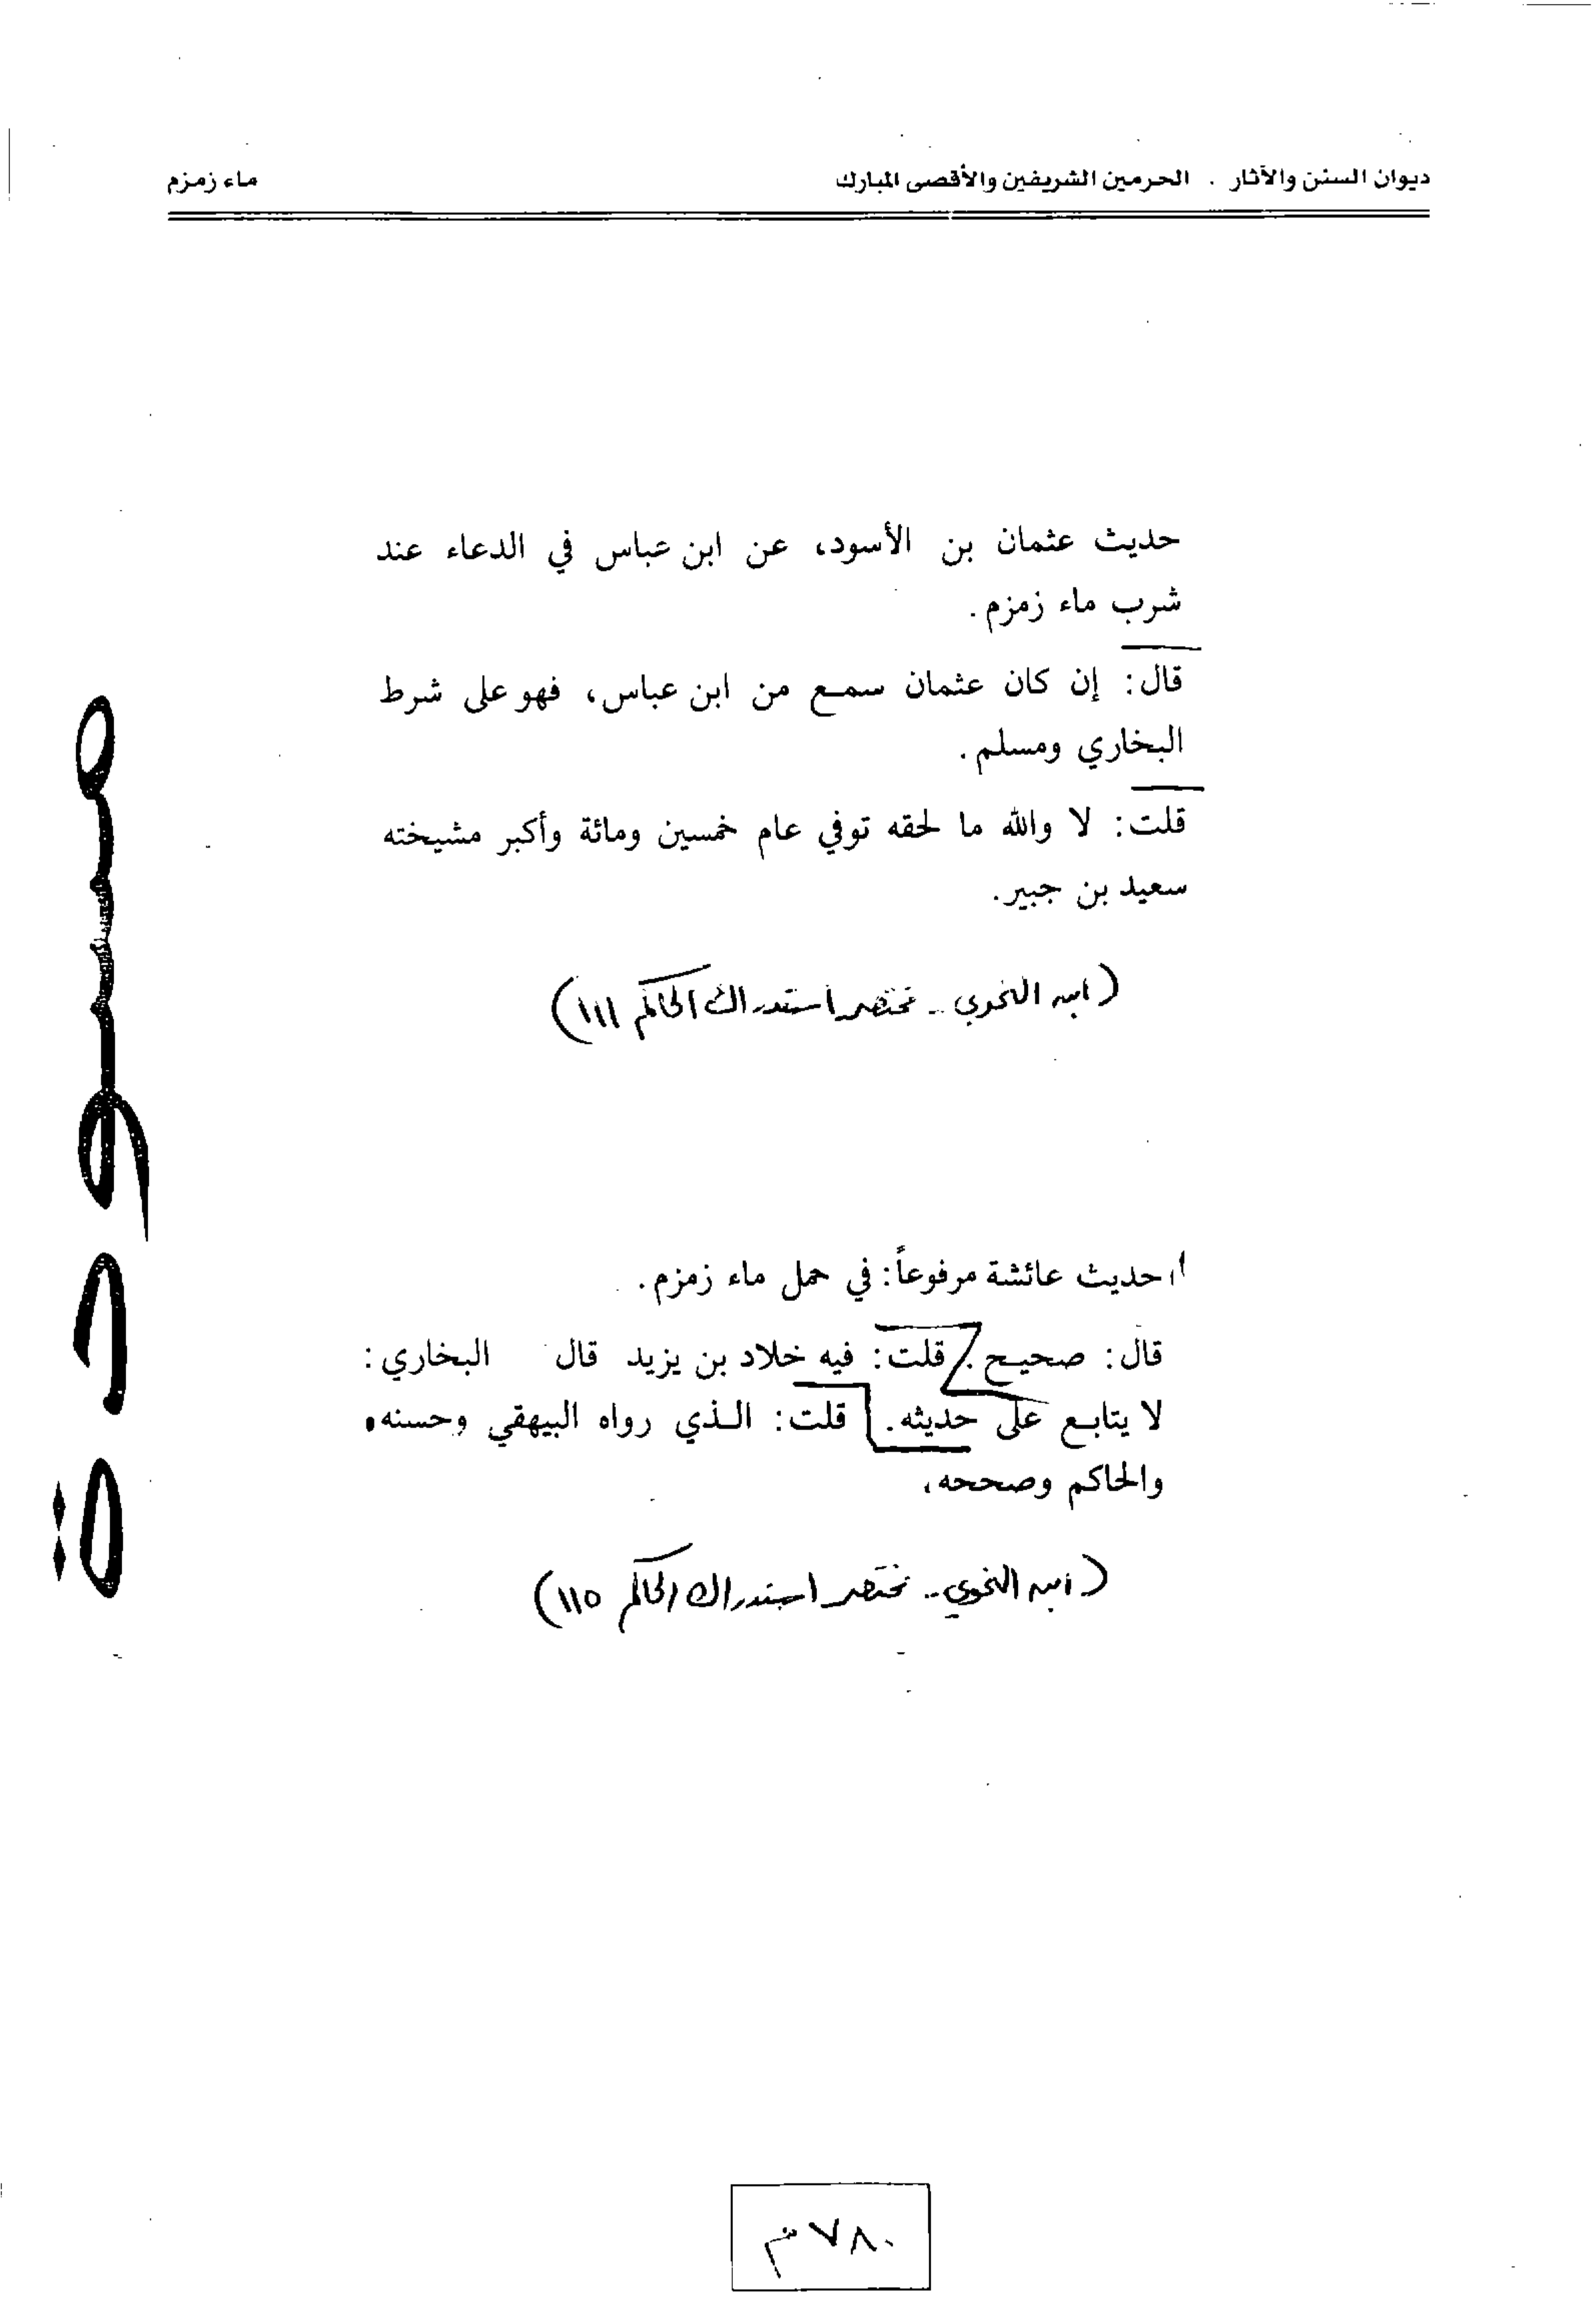 ديوان السنن والآثار . الحرمين الشريفين والأقصى المبارك
ماء زمزم
حديث عثمان بن الأسود، عن ابن عباس في الدعاء عند
شرب ماء زمزم.
قال: إن كان عثمان سمع من ابن عباس، فهو على شرط
البخاري ومسلم.
قلت: لا والله ما لحقه توفي عام خمسين ومائة وأكبر مشيخته
سعيد بن جبير.
(ابن النحوي - مختصر استدراك الحاكم ١١١)
حديث عائشة مرفوعاً: في حمل ماء زمزم.
قال: صحيح. قلت: فيه خلاد بن يزيد قال البخاري:
لا يتابع على حديثه. قلت: الذي رواه البيهقي وحسنه،
والحاكم وصححه،
(ابن النحوي - مختصر استدراك الحاكم ١١٥)
مسودة
٧٨٠